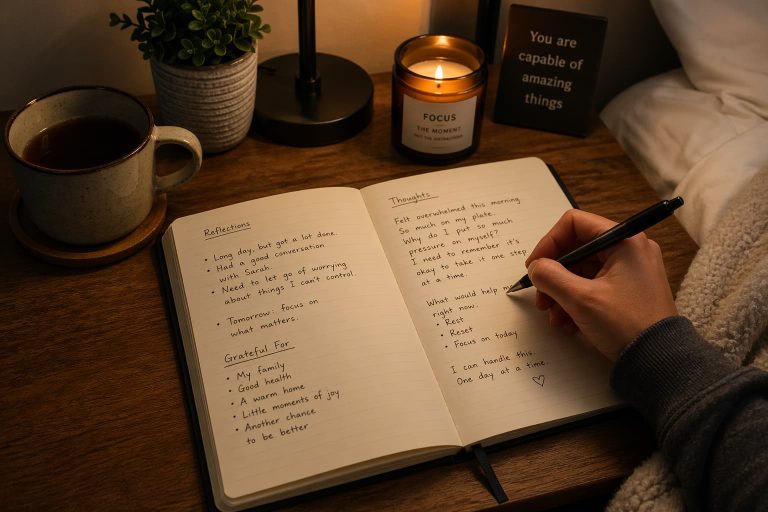 Reflections
• Long day, but got a lot done.
• Had a good conversation
with Sarah.
• Need to let go of worrying
about things I can't control.
• Tomorrow: focus on
what matters.
Grateful For
• My family
• Good health
• A warm home
• Little moments of joy
• Another chance
to be better
Thoughts
Felt overwhelmed this morning
So much on my plate.
Why do I put so much
pressure on myself?
I need to remember it's
okay to take it one step
at a time.
What would help me
right now:
• Rest
• Reset
• Focus on today
I can handle this.
One day at a time.
FOCUS
THE MOMENT
You are
capable of
amazing
things